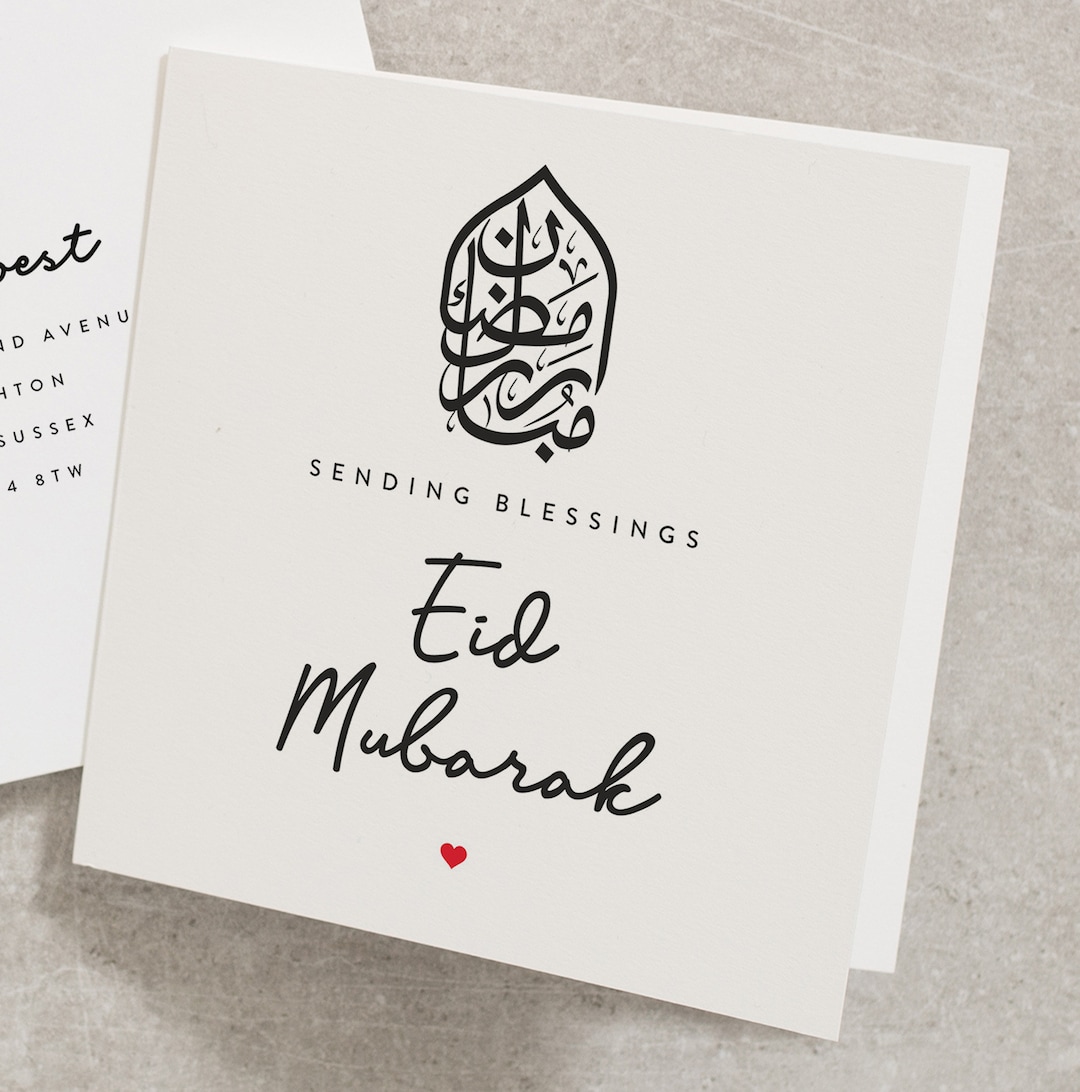 رمضان
مبارك
SENDING BLESSINGS
Eid
Mubarak
best
ND AVENU
HTON
SUSSEX
4 8TW